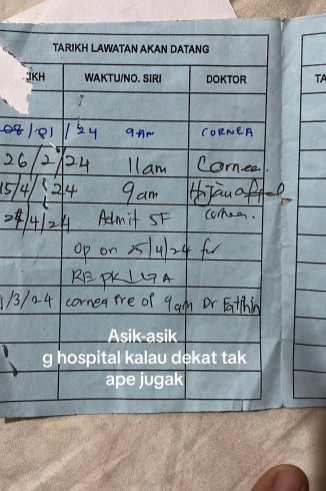 TARIKH LAWATAN AKAN DATANG
IKH WAKTU/NO. SIRI DOKTOR
08/01/24 9AM CORNEA
26/2/24 11am Cornea.
15/4/24 9am
24/4/24 Admit 5F cornea.
op on 25/4/24 for
RE PK LA
1/3/24 cornea pre op 9am Dr Fatihin
Asik-asik
g hospital kalau dekat tak
ape jugak
TA